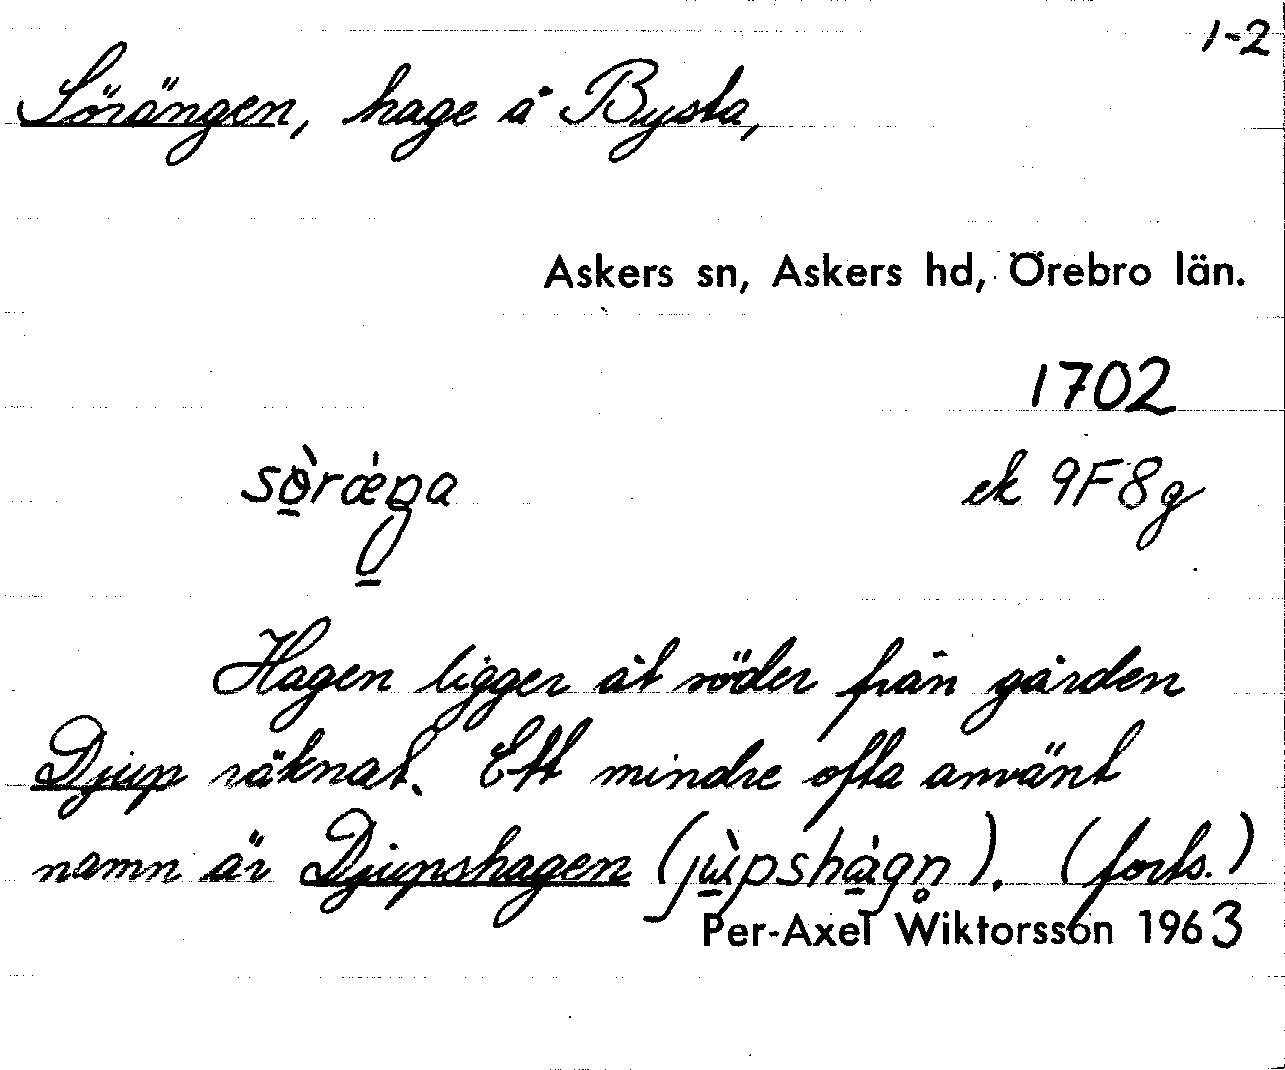 1-2
Sörängen, hage å Bysta,
Askers sn, Askers hd, Örebro län.
1702
sö̀rǽŋa
ek 9F8g
Hagen ligger åt söder från gården
Djup räknat. Ett mindre ofta använt
namn är Djupshagen (jùpshàgn̥). (forts.)
Per-Axel Wiktorsson 1963